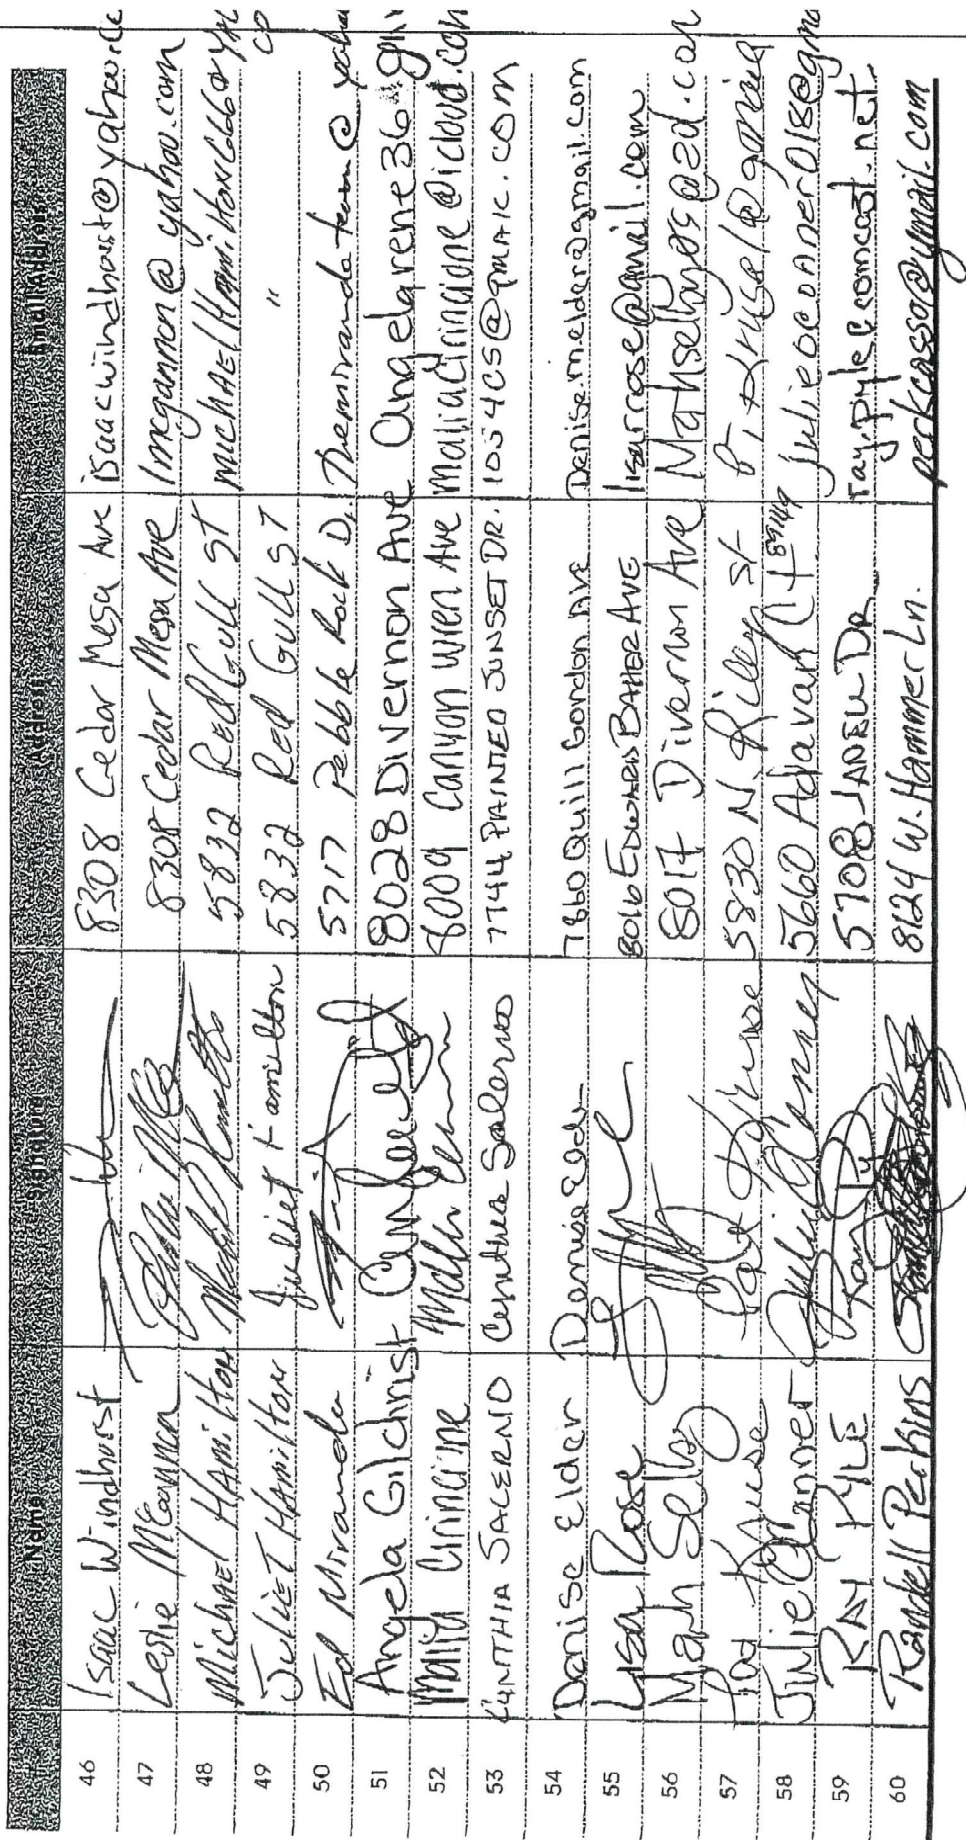 Name Signature Address Email Address
46 Isaac Windhurst 8308 Cedar Mesa Ave isaacwindhurst@yahoo.co
47 Leslie McGannon 8308 Cedar Mesa Ave lmcgannon@yahoo.com
48 Michael Hamilton 5832 Red Gull ST
49 Juliet Hamilton Juliet Hamilton 5832 Red Gull ST "
50 Ed Miranda 5717 Pebble Rock Dr themirandateam@
51 Angela Gilchrist 8028 Divernon Ave angelgrene36
52 Malia Cirincine 8009 Canyon Wren Ave @icloud.com
53 CYNTHIA SALERNO Cynthia Salerno 7744 PAINTED SUNSET DR. 1054CS@GMAIL.COM
54 Denise Elder Denise Elder 7860 Quill Gordon AVE Denise.m.elder@gmail.com
55 Lisa Rose 8016 EDWARD BAHER AVE lisarrose@gmail.com
56 Marsh Selby 8017 Divernon Ave
57 Pat Kruse Pat Kruse 5830 N. Riley St
58 Julie OConner 5660 Ct 89149 julieoconner018@gma
59 RAY PYLE Ray Pyle 5708 JANELL DR ray.pyle@comcast.net
60 Randell Perkins 8124 W. Hammer Ln. perkcasso@ymail.com